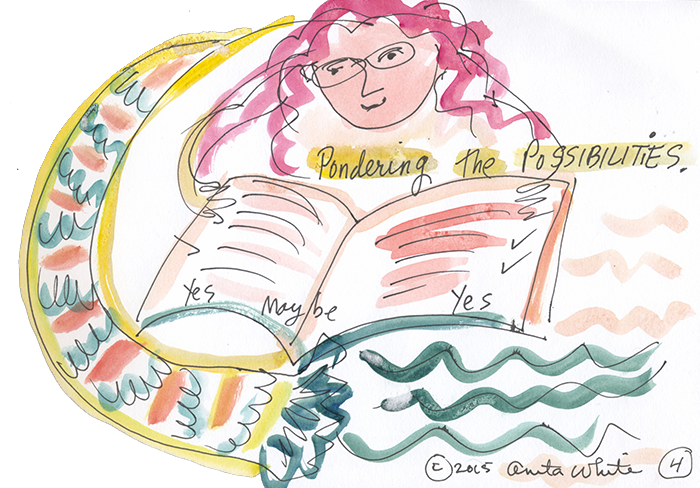 Pondering the PoSSIBILITIES.
Yes Maybe Yes
©2015 Anita White 4